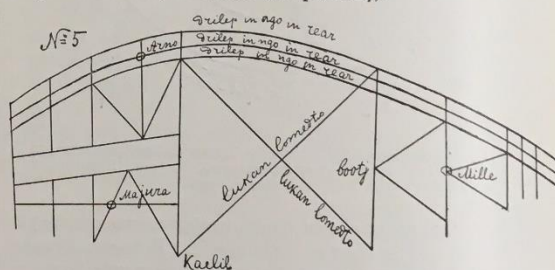 № 5
drilep in ngo in rear
drilep in ngo in rear
drilep in ngo in rear
Arno
lukan lomedto
lukan lomedto
bootj
Mille
Majura
Kaelib